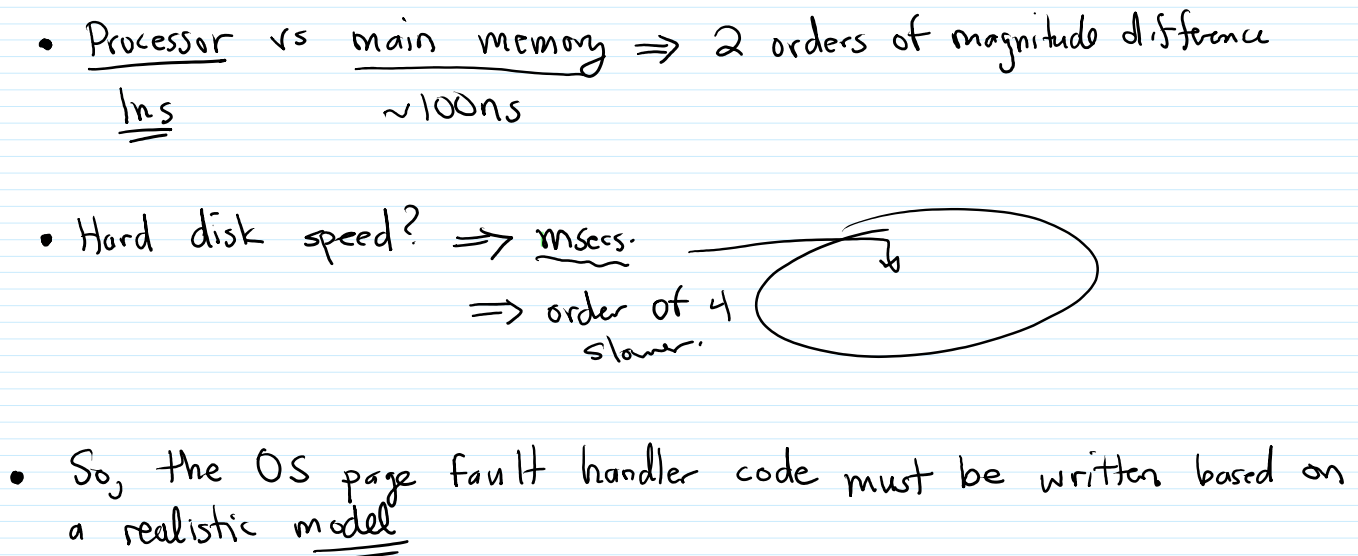 • Processor vs main memory ⇒ 2 orders of magnitude difference
1ns ~100ns
• Hard disk speed? ⇒ msecs.
⇒ order of 4
slower.
• So, the OS page fault handler code must be written based on
a realistic model